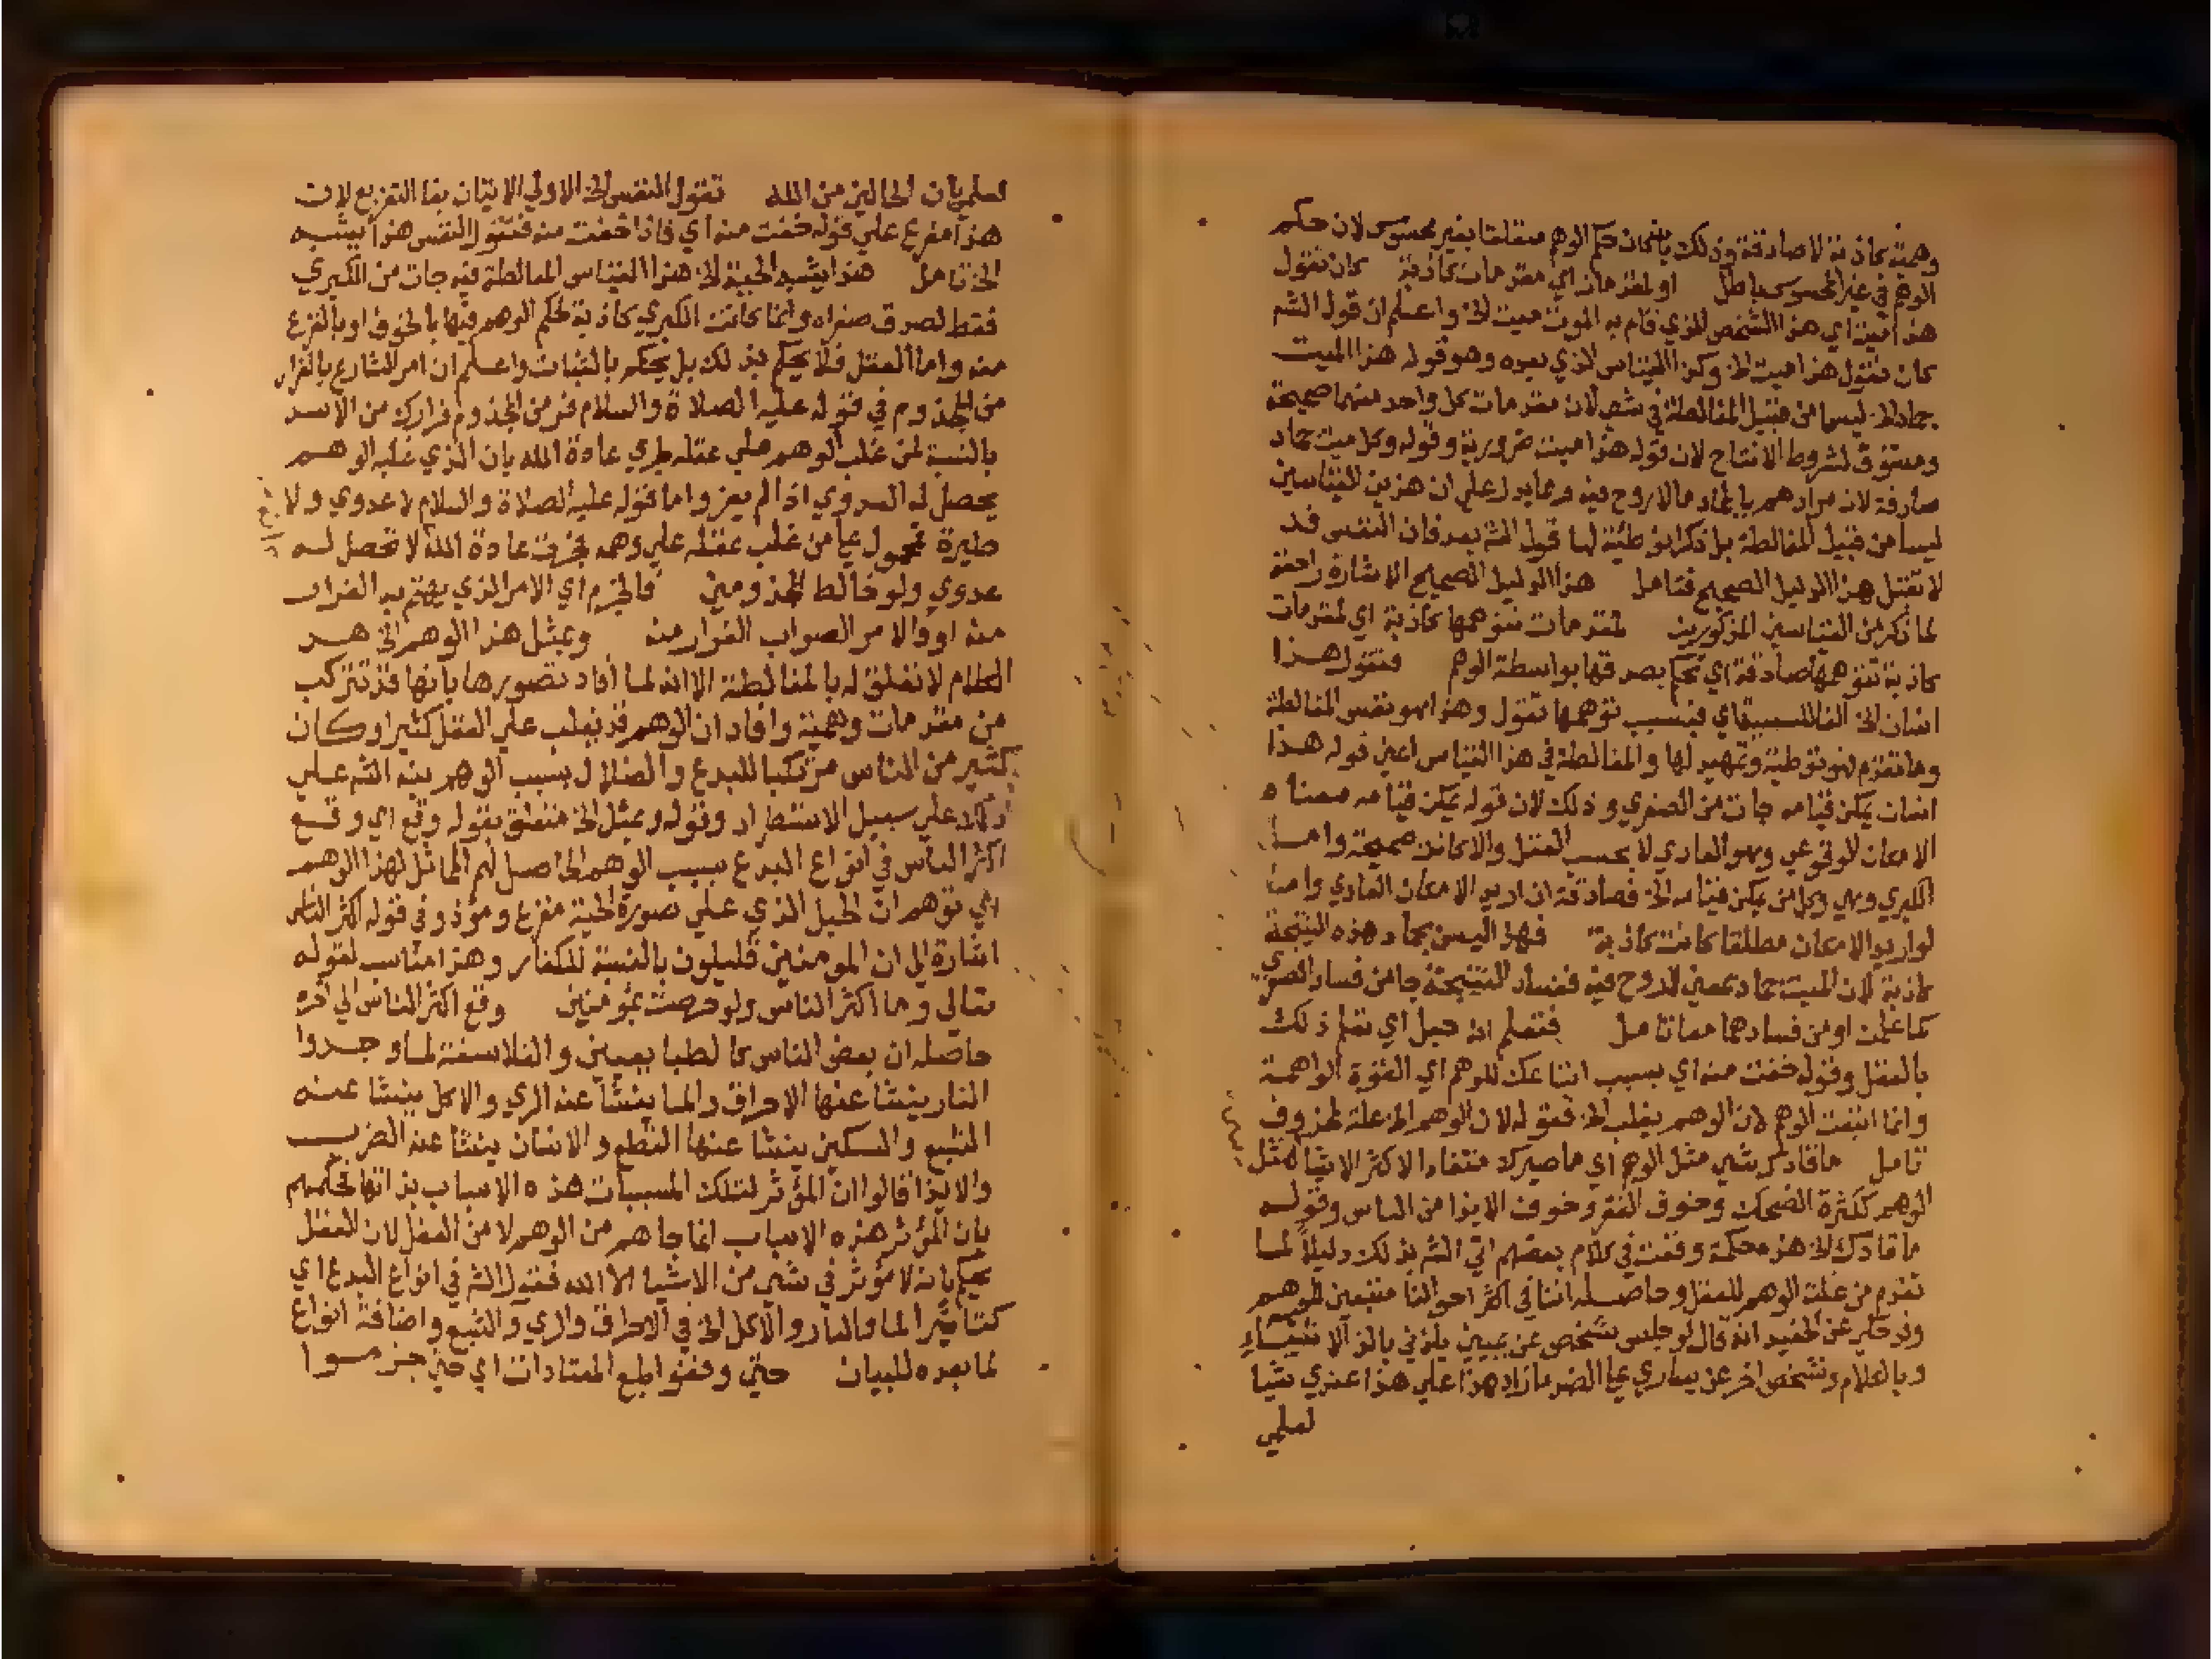 وهمية كاذبة لا صادقة وذلك بان كان حكم الوهم متعلقا بغير محسوس لان حكم
الوهم في غير المحسوس باطل او لمقدمات اي مقدمات كاذبة كان تقول
هذا ميت اي هذا الشخص الذي قام به الموت ميت الخ واعلم ان قول الشم
كان تقول هذا ميت الخ وكذا القياس الذي بعده وهو قوله هذا الميت
جماد الخ ليسا من قبيل المغالطة في شي لان مقدمات كل واحد منهما صحيحة
ومستوف لشروط الانتاج لان قوله هذا ميت ضرورية وقوله وكل ميت جماد
صادقة لان مرادهم بالجماد ما لا روح فيه ومما يدل علي ان هذين القياسين
ليسا من قبيل المغالطة بل ذكرا توطئية لها قول الشم بعد فان النفس قد
لا تقبل هذا الدليل الصحيح فتامل هذا الدليل الصحيح الاشارة راجعة
لما ذكر من القياسين المذكورين لمقدمات تتوهمها كاذبة اي لمقدمات
كاذبة تتوهمها صادقة اي تحكم بصدقها بواسطة الوهم فتقول هذا
انسان الخ الفا للسببية اي فبسبب توهمها تقول وهذا هو نفس المغالطة
وما تقدم فهو توطية وتمهيد لها والمغالطة في هذا القياس اعني قوله هذا
انسان يمكن قيامه جات من الصغري وذلك لان قوله يمكن قيامه معناه
الامكان الوقوعي وهو العادي لا بحسب العقل والا كانت صحيحة واما
الكبري وهي وكل من يمكن قيامه الخ فصادقة ان اريد الامكان العادي واما
لو اريد الامكان مطلقا كانت كاذبة فهذا ليس بجماد هذه النتيجة
كاذبة لان الميت جماد بمعني لا روح فيه ففساد النتيجة جا من فساد الصغري
كما علمت او من فسادهما معا تامل فتعلم انه حبل اي تعلم ذلك
بالعقل وقوله خفت منه اي بسبب اتباعك للوهم اي القوة الواهمة
وانما اتبعت الوهم لان الوهم يغلب الخ فقوله لان الوهم الخ علة لمحذوف
تامل ما قادك شي مثل الوهم اي ما صيرك منقادا لاكثر الاشيا مثل
الوهم ككثرة الضحك وخوف الفقر وخوف الايذا من الناس وقوله
ما قادك الخ هذه حكمة وقعت في كلام بعضهم اتي الشم بذلك دليلا لما
تقدم من غلبة الوهم للعقل وحاصله اننا في اكثر احوالنا متبعين للوهم
وقد حكي عن الجنيد انه قال لو جلس شخص عن يميني يلذذني بالذ الاشياء
وبالكلام وشخص اخر عن يساري علي الضد ما زاد هذا علي هذا عندي شيا
لعلمي
لعلمي بان الحالين من الله تقول النفس الخ الاولي الاتيان بفا التفريع لان
هذا مفرع علي قوله خفت منه اي فاذا خفت منه فتقول النفس هذا يشبه
الخ تامل هذا يشبه الحية الخ هذا القياس المغالطة فيه جات من الكبري
فقط لصدق صغراه وانما كانت الكبري كاذبة لحكم الوهم فيها بالخوف او بالفزع
منه واما العقل فلا يحكم بذلك بل يحكم بالثبات واعلم ان امر الشارع بالفرار
من المجذوم في قوله عليه الصلاة والسلام فر من المجذوم فرارك من الاسد
بالنسبة لمن غلب الوهم علي عقله لجري عادة الله بان الذي غلبه الوهم
يحصل له العدوي اذا لم يفر واما قوله عليه الصلاة والسلام لا عدوي ولا
طيرة محمول علي من غلب عقله علي وهمه فجرت عادة الله لا تحصل له
عدوي ولو خالط المجذومين فالجزم اي الامر الذي يهتم به الفرار
منه او والامر الصواب الفرار منه وبمثل هذا الوهم الخ هذا
الكلام لا تعلق له بالمغالطة الا انه لما افاد تصورها بانها قد تتركب
من مقدمات وهمية وافاد ان الوهم قد يغلب علي العقل كثيرا وكان
كثير من الناس مرتكبا للبدع والضلال بسبب الوهم نبه الشم علي
ذلك علي سبيل الاستطراد وقوله وبمثل الخ متعلق بقوله وقع اي وقع
اكثر الناس في انواع البدع بسبب الوهم الحاصل لهم المماثل لهذا الوهم
اي توهم ان الحبل الذي علي صورة الحية مفزع ومؤذ وفي قوله اكثر الناس
اشارة الي ان المومنين قليلون بالنسبة للكفار وهذا مناسب لقوله
تعالي وما اكثر الناس ولو حرصت بمؤمنين وقع اكثر الناس الي اخره
حاصله ان بعض الناس كالطبايعيين والفلاسفة لما وجدوا
النار ينشا عنها الاحراق والما ينشا عنه الري والاكل ينشا عنه
الشبع والسكين ينشا عنها القطع والانسان ينشا عنه الضرب
والايذا قالوا ان المؤثر لتلك المسببات هذه الاسباب بذاتها فحكمهم
بان المؤثر هذه الاسباب انما جاهم من الوهم لا من العقل لان العقل
يحكم بانه لا مؤثر في شي من الاشيا الا الله فقول الشم في انواع البدع اي
كتاثير الما والنار والاكل الخ في الاحراق والري والشبع واضافة انواع
لما بعده للبيان حتي وقفوا مع المعتادات اي حتي جزموا